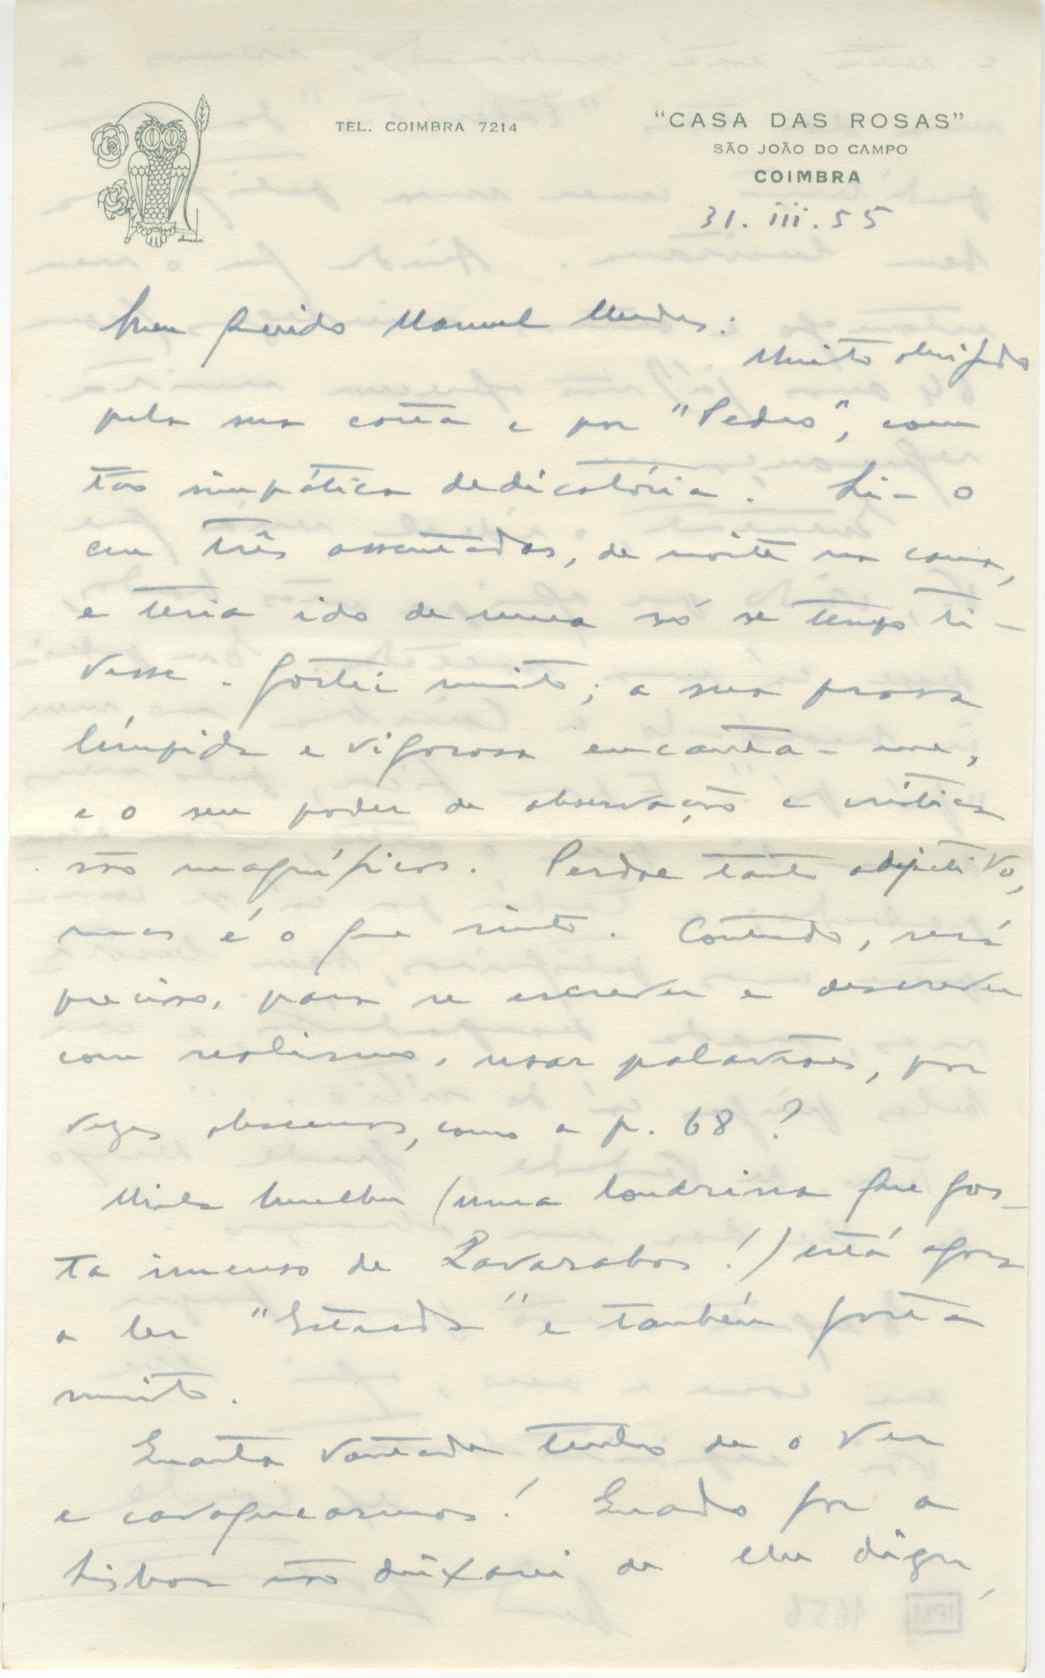 TEL. COIMBRA 7214
"CASA DAS ROSAS"
SÃO JOÃO DO CAMPO
COIMBRA
31.iii.55
Meu querido Manuel Mendes:
Muito obrigado
pela sua carta e por "Pedro", com
tão simpática dedicatória. Li-o
em três assentadas, de noite na cama,
e teria ido de uma só se tempo ti-
vesse. Gostei muito; a sua prosa
límpida e vigorosa encanta-me,
e o seu poder de observação e crítica
são magníficos. Perdoe tanto adjetivo,
mas é o que sinto. Contudo, será
preciso, para se escrever e descrever
com realismo, usar palavrões, por
vezes obscenos, como a p. 68?
Minha mulher (uma londrina que gos-
ta imenso de Lavarabos!) está agora
a ler "Estrada" e também gosta
muito.
Quanta vontade tenho de o ver
e cavaquearmos! Quando for a
Lisboa não deixarei de lhe dizer,